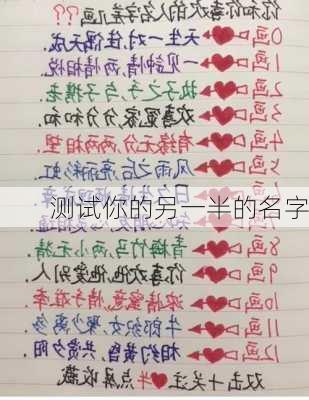 你和你喜欢的人名字差几画??
0画 天生一对,佳偶天成.
1画 一见钟情,两情相悦.
2画 执子之手,与子携老.
3画 欢喜冤家,分分和和.
4画 有缘无分,两两相望.
5画 风雨之后,亮丽彩虹.
测试你的另一半的名字
8画 青梅竹马,两小无猜.
9画 你喜欢他,他爱别人.
10画 浓情蜜意,
11画 牛郎织女,聚少离多.
12画 相约黄昏,共赏夕阳.
双击+关注 点屏收藏